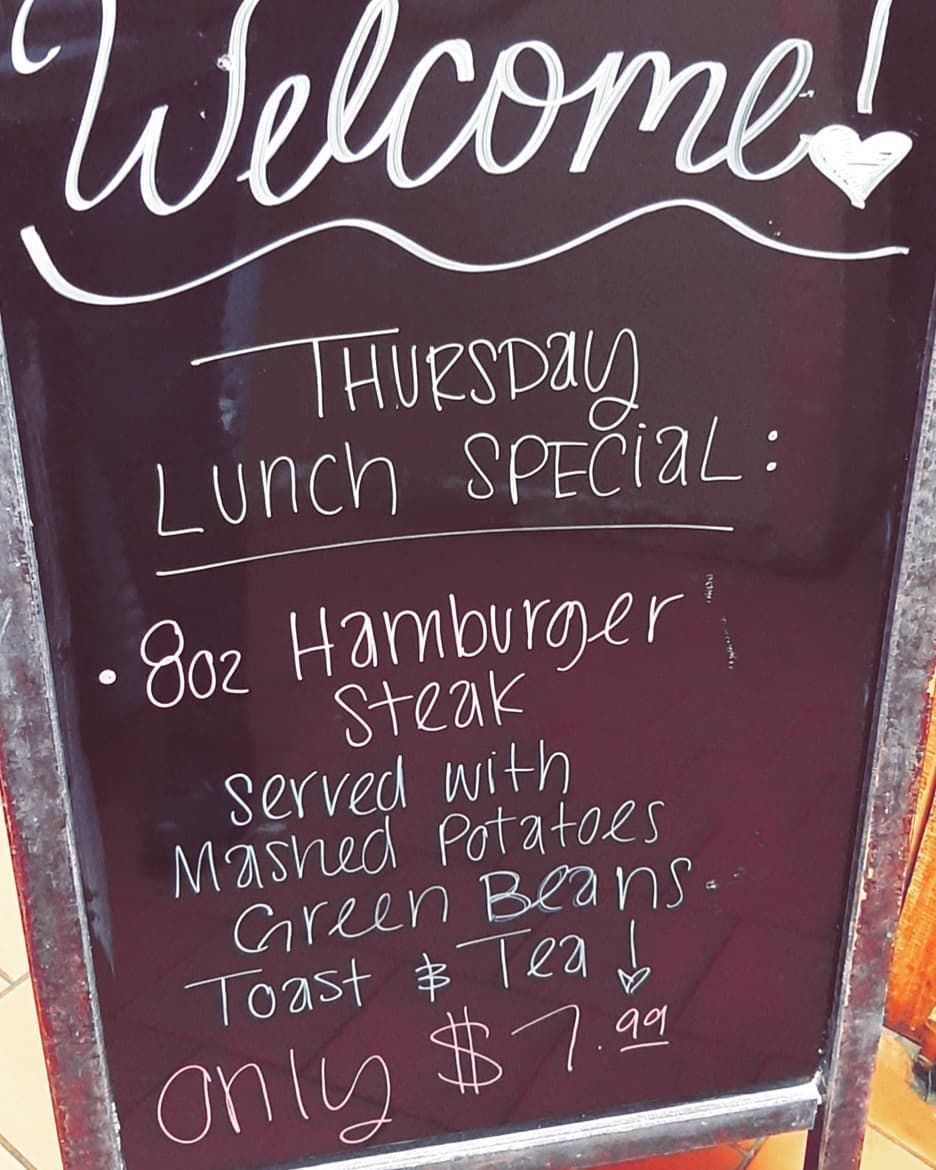 Welcome!
THURSDAY
LUNCH SPECIAL:
• 8oz Hamburger
Steak
Served with
Mashed Potatoes
Green Beans
Toast & Tea!
only $7.99